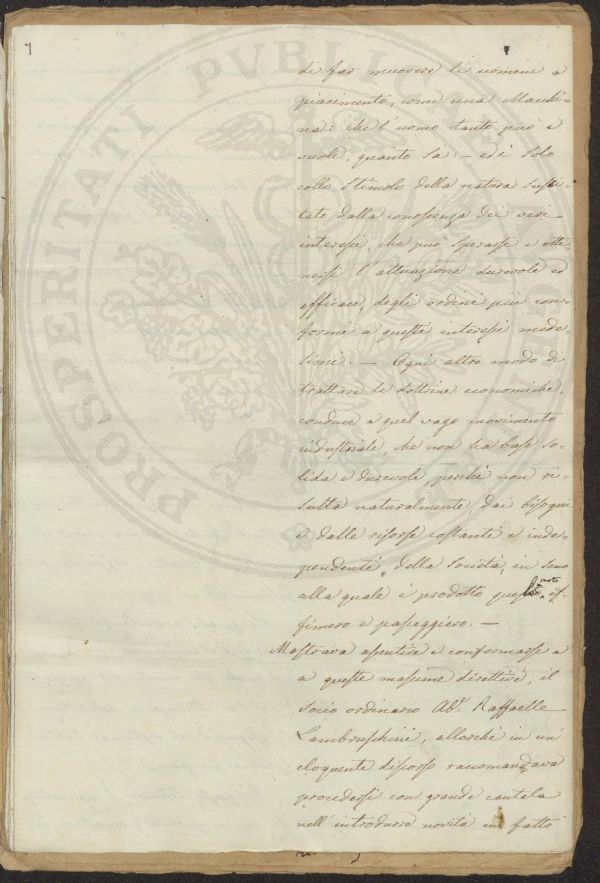 di far muovere li uomini a
piacimento, come una Macchi-
na: che l'uomo tanto può e
vuole, quanto sà: — ed è solo
collo stimolo della natura susci-
tato dalla conoscenza dei veri
interessi, che può sperarsi e otte-
nersi l'attuazione durevole ed
efficace, degli ordini più con-
formi a questi interessi mede-
simi. — Ogni altro modo di
trattare le dottrine economiche,
conduce a quel vago movimento
industriale, che non ha base so-
lida e durevole, perchè non ri-
sulta naturalmente, dai bisogni
e dalle risorse costanti e inde-
pendenti, della Società, in seno
alla quale è prodotto questo moto ef-
fimero e passeggiero. —
Mostrava assentire e conformarsi a
a queste massime direttive, il
Socio ordinario Ab.e Raffaelle
Lambruschini, allorchè in un'
eloquente discorso raccomandava
procedersi con grande cautela
nell'introdurre novità in fatto
PROSPERITATI PVBLICAE